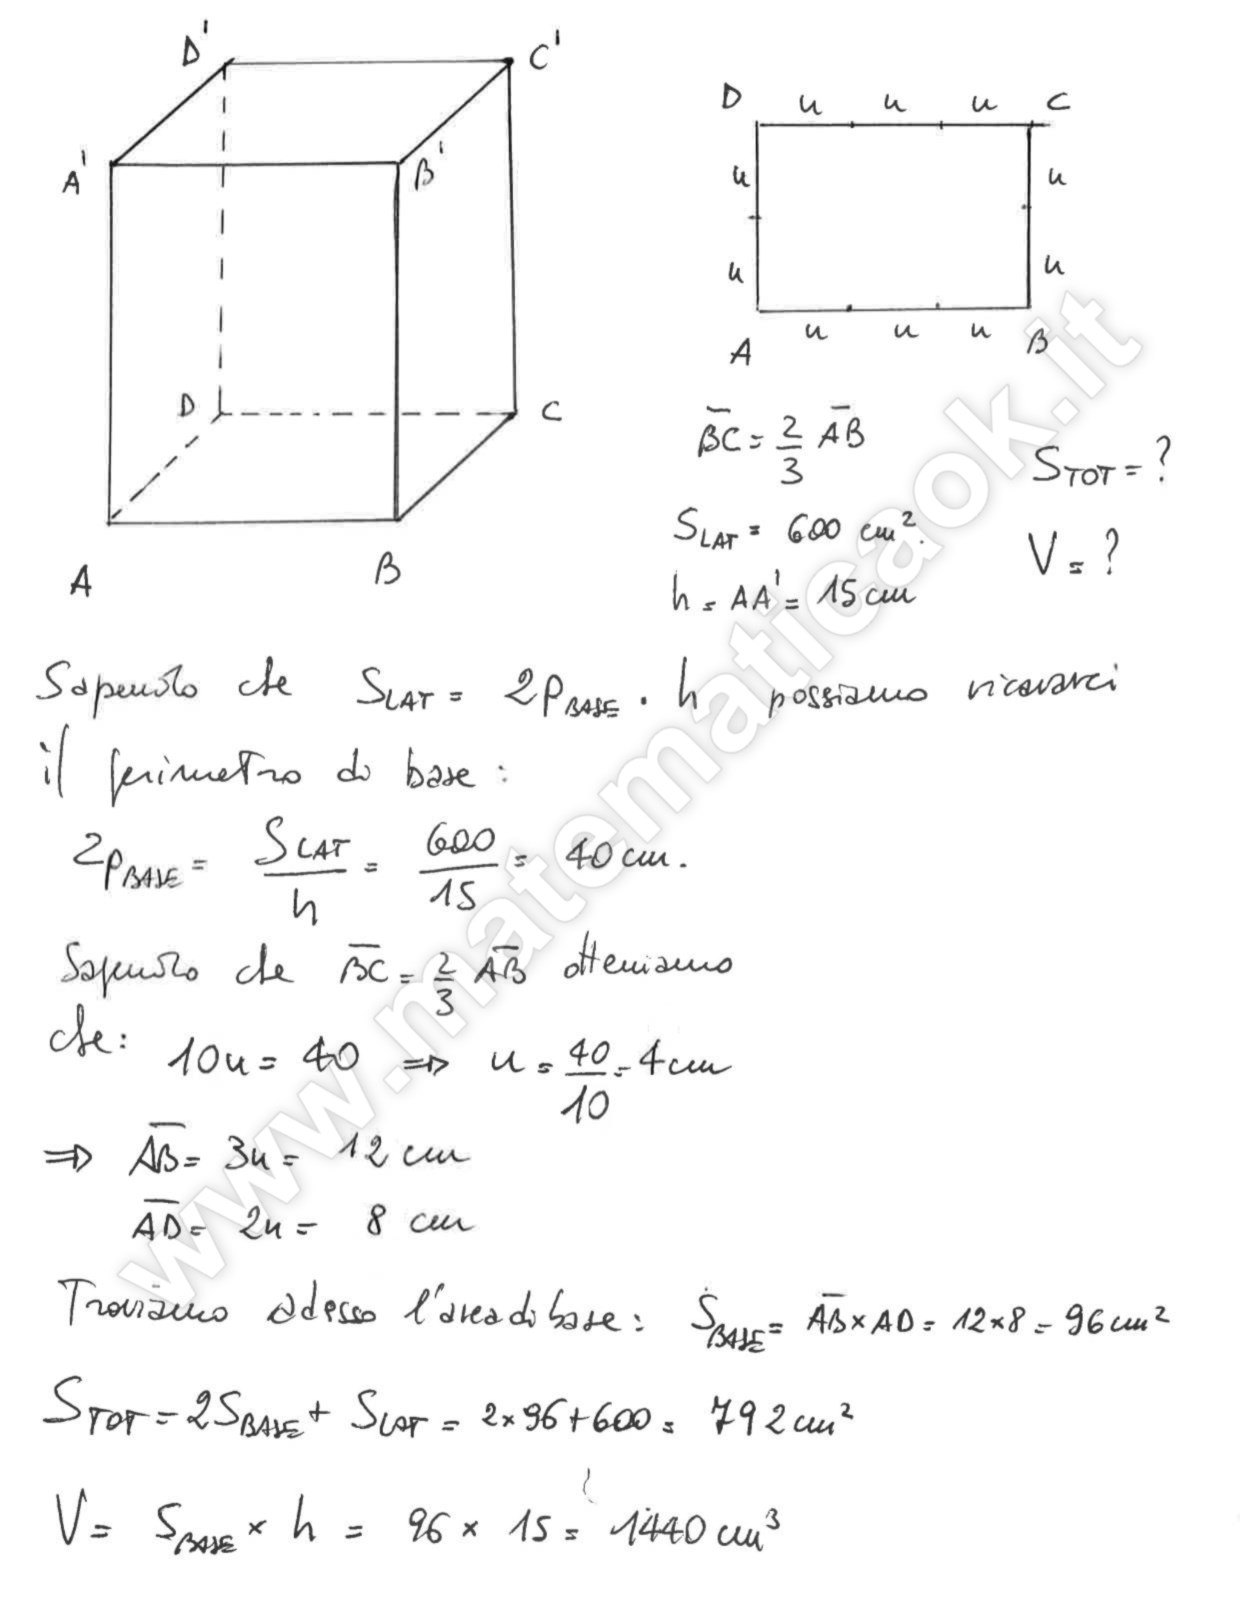 D' C'
A' B'
D C
A B
D u u u C
u u
u u
A u u u B
BC = 2/3 AB
S_TOT = ?
S_LAT = 600 cm².
V = ?
h = AA' = 15 cm
Sapendo che S_LAT = 2p_BASE · h possiamo ricavarci
il perimetro di base :
2p_BASE = S_LAT/h = 600/15 = 40 cm.
Sapendo che BC = 2/3 AB otteniamo
che: 10u = 40 ⇒ u = 40/10 = 4 cm
⇒ AB = 3u = 12 cm
AD = 2u = 8 cm
Troviamo adesso l'area di base : S_BASE = AB × AD = 12 × 8 = 96 cm²
S_TOT = 2S_BASE + S_LAT = 2 × 96 + 600 = 792 cm²
V = S_BASE × h = 96 × 15 = 1440 cm³
www.matematicaok.it